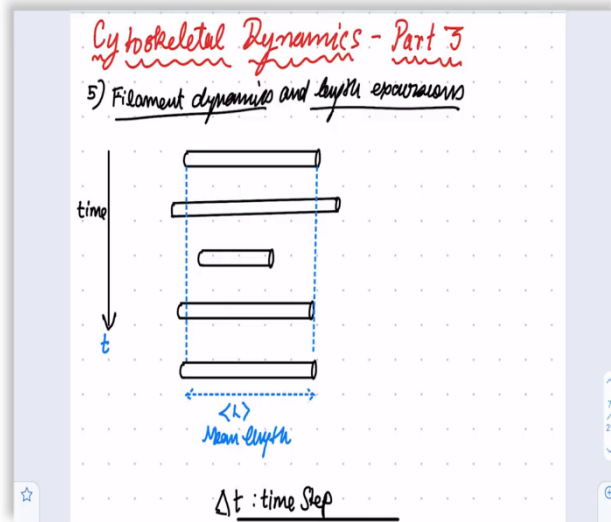 Cytoskeletal Dynamics - Part 3
5) Filament dynamics and length excursions
time
t
<L>
Mean length
Δt : time step